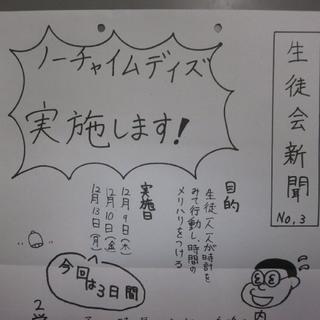 生徒会新聞
No.3
ノーチャイムデイズ
実施します!
目的
生徒一人一人が時計を
みて行動し、時間の
メリハリをつける。
実施日
12月9日(木)
12月10日(金)
12月13日(月)
今回
は3日間
内
2学